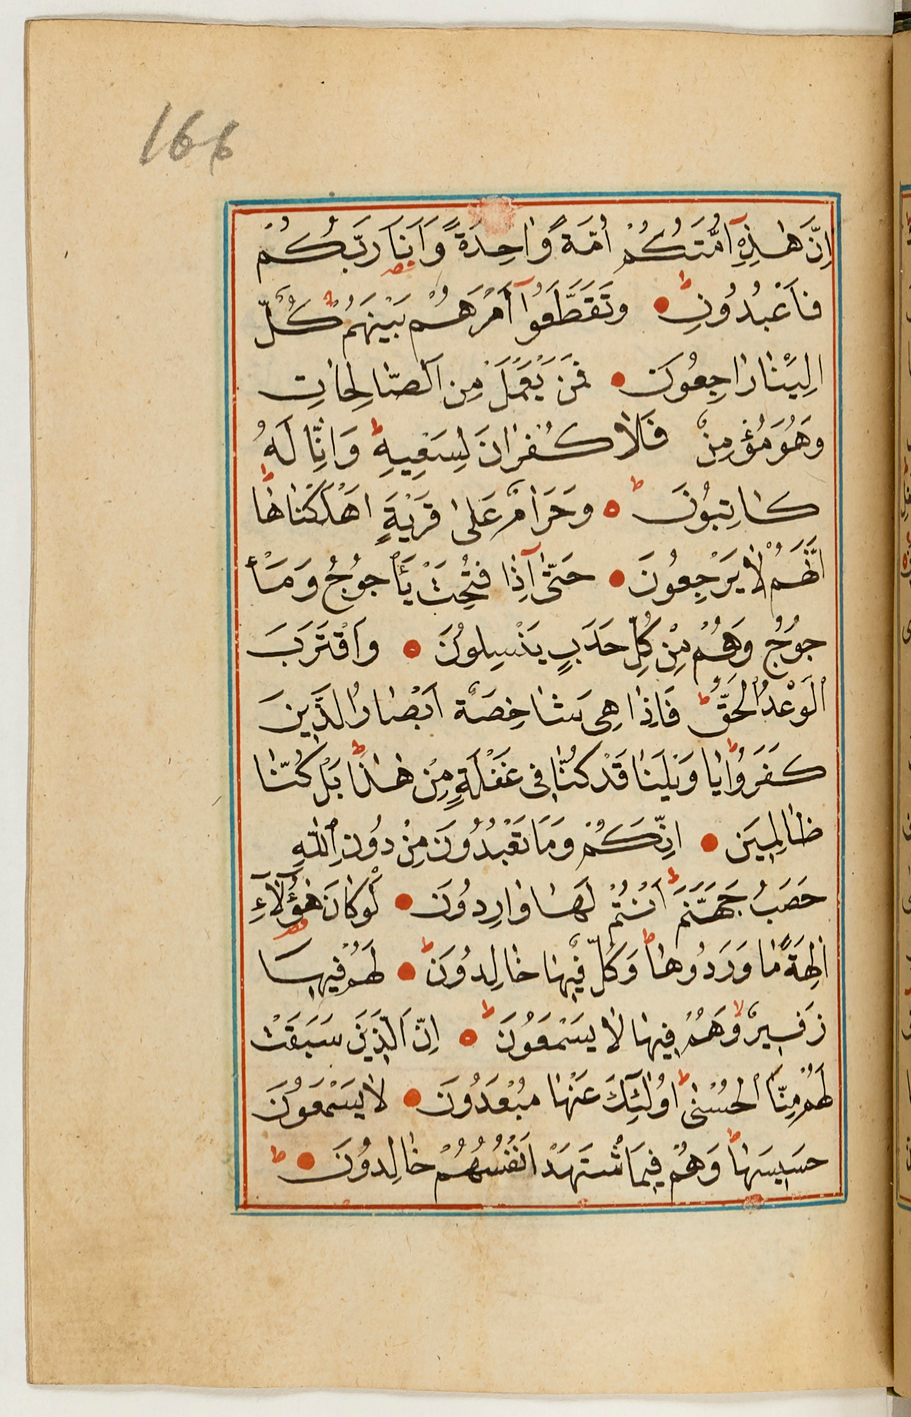 166
اِنَّ هٰذِهِ اُمَّتُكُمْ اُمَّةً وَّاحِدَةً وَاَنَا رَبُّكُمْ
فَاعْبُدُونِ وَتَقَطَّعُوا اَمْرَهُمْ بَيْنَهُمْ كُلٌّ
اِلَيْنَا رَاجِعُونَ فَمَنْ يَعْمَلْ مِنَ الصَّالِحَاتِ
وَهُوَ مُؤْمِنٌ فَلَا كُفْرَانَ لِسَعْيِهِ وَاِنَّا لَهُ
كَاتِبُونَ وَحَرَامٌ عَلٰى قَرْيَةٍ اَهْلَكْنَاهَا
اَنَّهُمْ لَا يَرْجِعُونَ حَتّٰى اِذَا فُتِحَتْ يَأْجُوجُ وَمَأْ
جُوجُ وَهُمْ مِنْ كُلِّ حَدَبٍ يَنْسِلُونَ وَاقْتَرَبَ
الْوَعْدُ الْحَقُّ فَاِذَا هِىَ شَاخِصَةٌ اَبْصَارُ الَّذِينَ
كَفَرُوا يَا وَيْلَنَا قَدْ كُنَّا فِى غَفْلَةٍ مِنْ هٰذَا بَلْ كُنَّا
ظَالِمِينَ اِنَّكُمْ وَمَا تَعْبُدُونَ مِنْ دُونِ اللّٰهِ
حَصَبُ جَهَنَّمَ اَنْتُمْ لَهَا وَارِدُونَ لَوْ كَانَ هٰؤُلَآءِ
اٰلِهَةً مَا وَرَدُوهَا وَكُلٌّ فِيهَا خَالِدُونَ لَهُمْ فِيهَا
زَفِيرٌ وَهُمْ فِيهَا لَا يَسْمَعُونَ اِنَّ الَّذِينَ سَبَقَتْ
لَهُمْ مِنَّا الْحُسْنٰى اُولٰئِكَ عَنْهَا مُبْعَدُونَ لَا يَسْمَعُونَ
حَسِيسَهَا وَهُمْ فِيمَا شْتَهَتْ اَنْفُسُهُمْ خَالِدُونَ